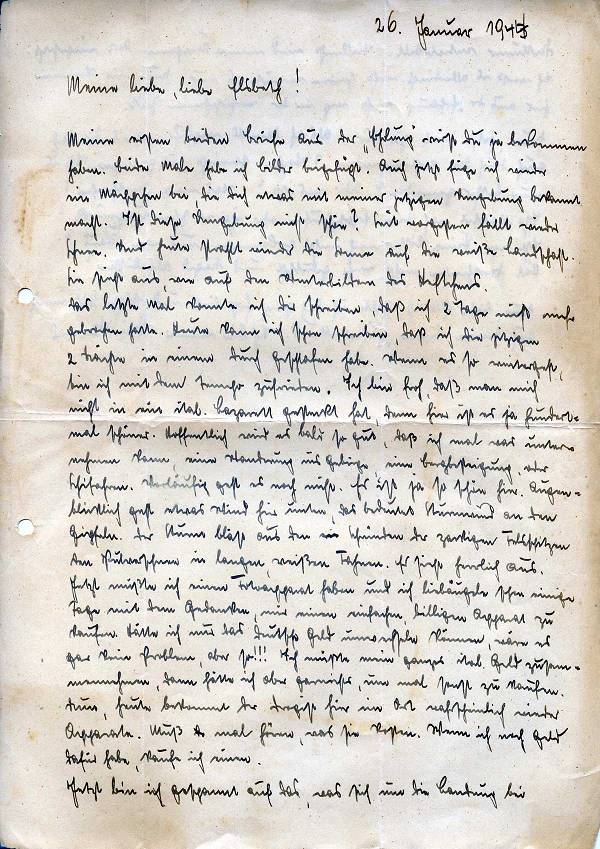 26. Januar 1944
Meine liebe, liebe Elsbeth!
Meine ersten beiden Briefe aus der "Erholung" wirst du ja bekommen
haben. Beide Male habe ich Bilder beigefügt. Auch jetzt füge ich wieder
ein Mäppchen bei, die dich etwas mit meiner jetzigen Umgebung bekannt
macht. Ist diese Umgebung nicht schön? Seit vorgestern fällt wieder
Schnee. Und heute strahlt wieder die Sonne auf die weiße Landschaft.
Sie sieht aus, wie auf den Winterbildern des
Das letzte Mal konnte ich dir schreiben, daß ich 2 Tage nicht mehr
gebrochen hatte. Heute kann ich schon schreiben, daß ich die jetzigen
2 Nächte in einem durch geschlafen habe. Wenn es so weitergeht,
bin ich mit dem zufrieden. Ich bin froh, daß man mich
nicht in ein ital. Lazarett gesteckt hat, denn hier ist es ja hundert-
mal schöner. Hoffentlich wird es bald so gut, daß ich mal was unter-
nehmen kann, eine Wanderung ins Gebirge, eine Bergbesteigung oder
Schifahren. Vorläufig geht es noch nicht. Es ist ja so schön hier. Augen-
blicklich geht etwas Wind hier unten, das bedeutet Sturmwind an den
Gipfeln. Der Sturm bläst aus den Schründen der zackigen Felsspitzen
den Pulverschnee in langen, weißen Fahnen. Es sieht herrlich aus.
Jetzt müßte ich einen Fotoapparat haben und ich liebäugele schon einige
Tage mit dem Gedanken, mir einen einfachen, billigen Apparat zu
kaufen. Hätte ich nur das deutsche Geld umwechseln können, wäre es
gar kein Problem, aber so!!! Ich müßte mein ganzes ital. Geld zusam-
mennehmen, dann hätte ich aber garnichts, um mal sonst zu kaufen.
Nun, heute bekommt der Drogist hier im Ort wahrscheinlich wieder
Apparate. Muß mal hören, was sie kosten. Wenn ich noch Geld
dafür habe, kaufe ich einen.
Jetzt bin ich gespannt auf das, was sich um die Landung bei